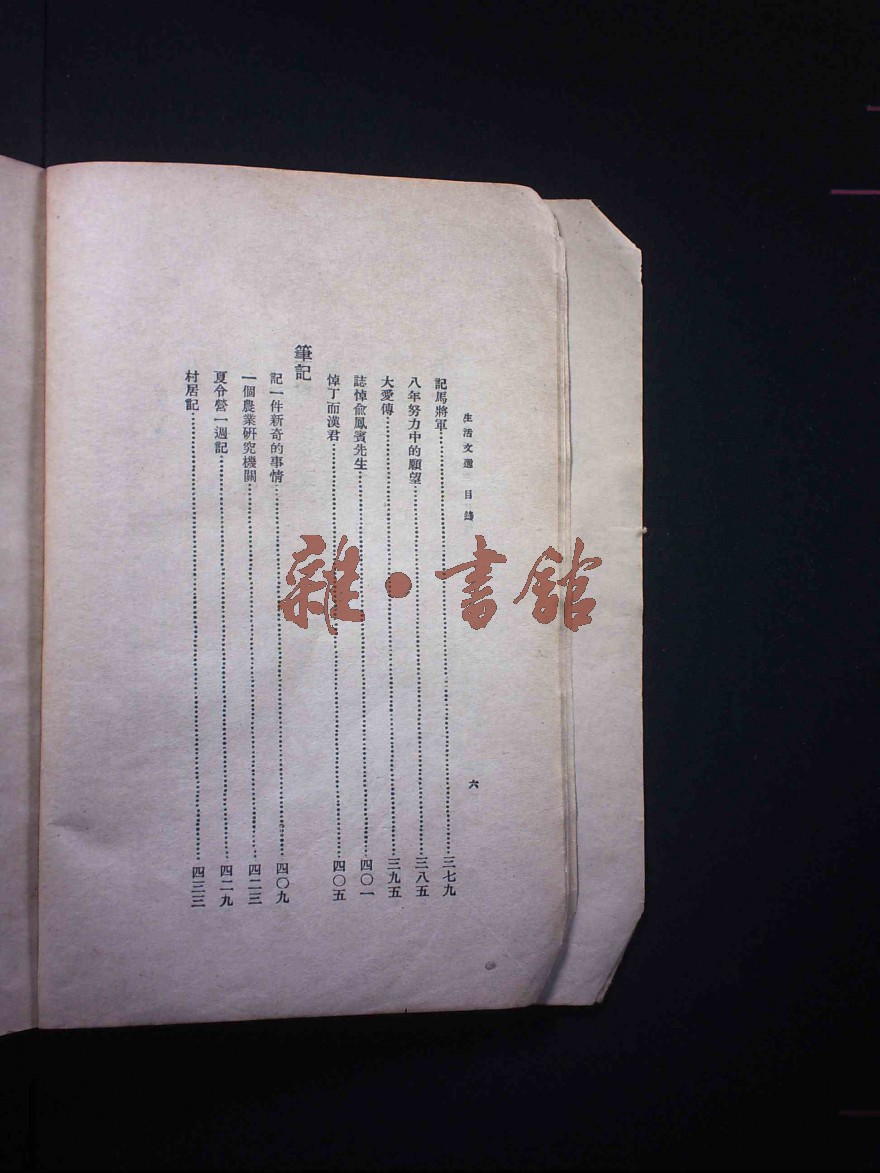 生活文選 目錄 六
記馬將軍……三七九
八年努力中的願望……三八五
大愛傳……三九五
誌悼俞鳳賓先生……四〇一
悼丁而漢君……四〇五
筆記
記一件新奇的事情……四〇九
一個農業研究機關……四二三
夏令營一週記……四二九
村居記……四三三
雜·書館